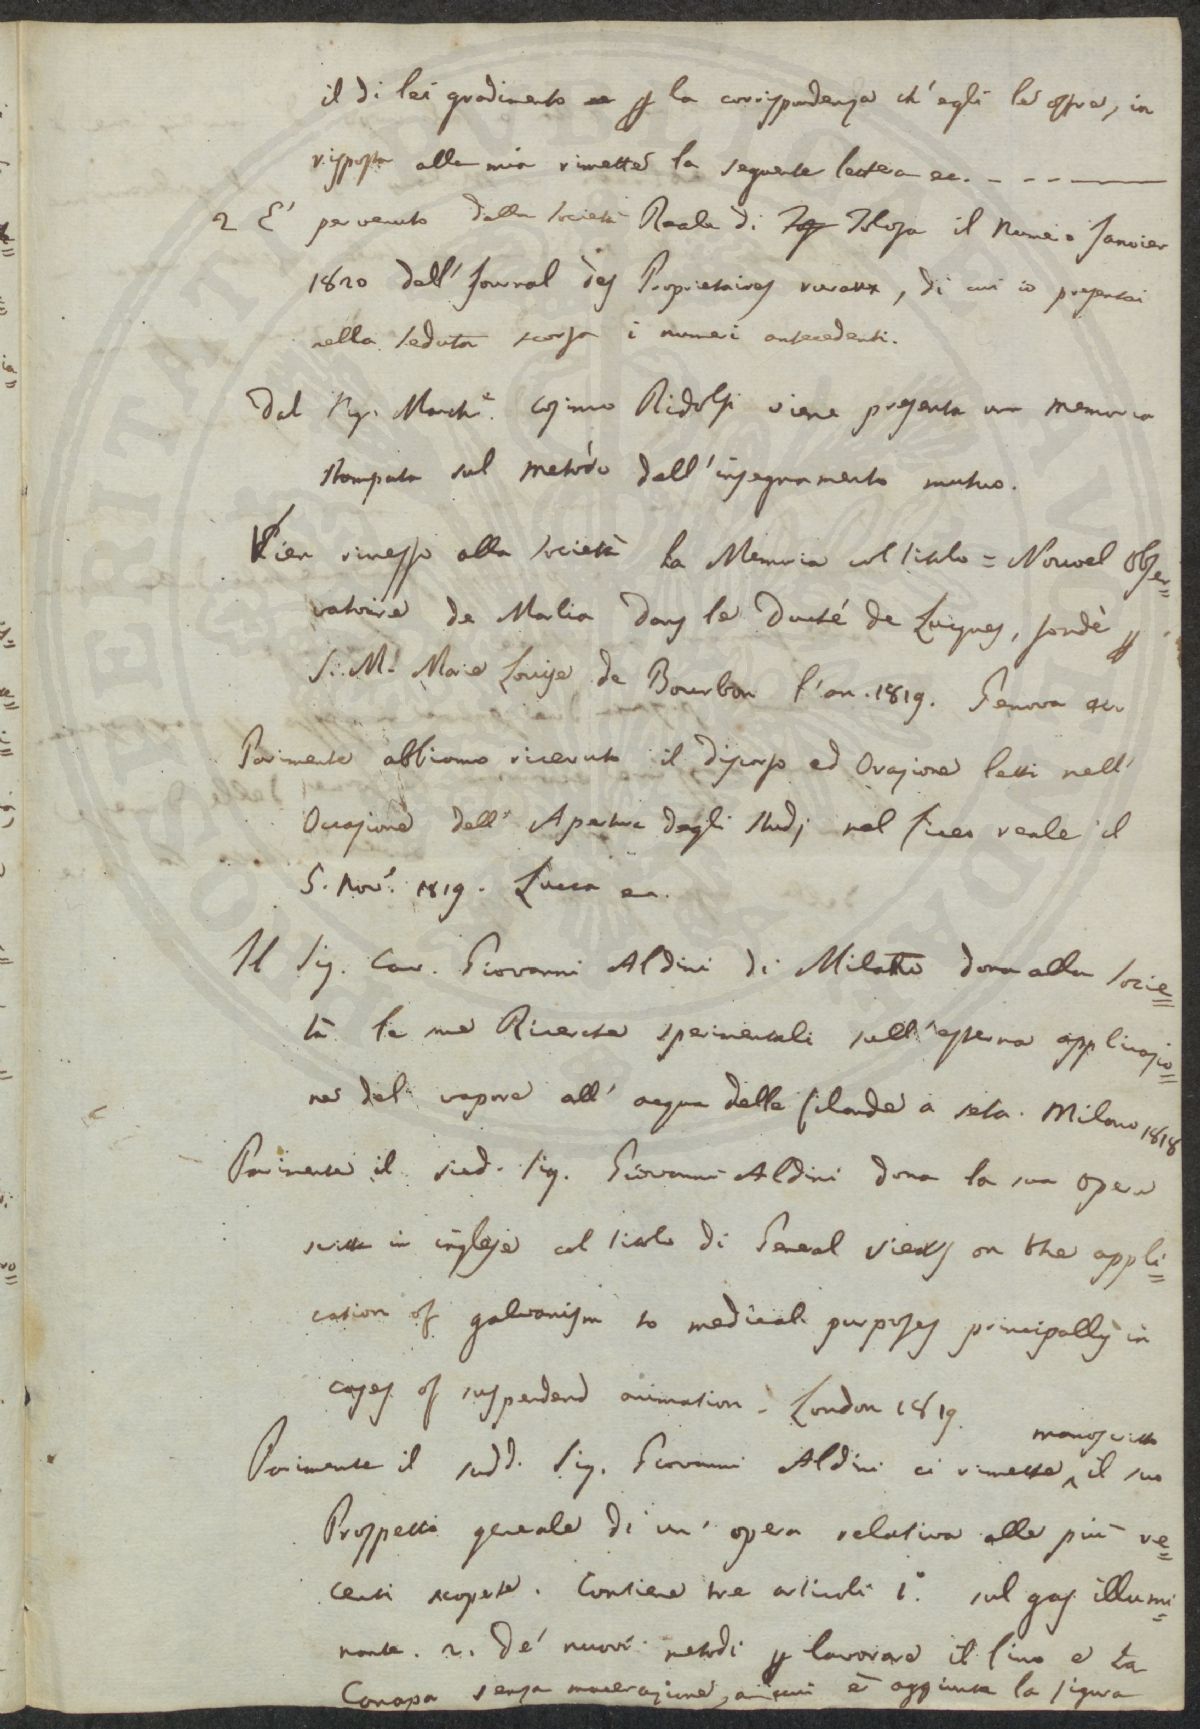 il di lei gradimento per la corrispondenza ch'egli le offre, in
risposta alla mia rimette la seguente lettera ec. - - - -
2 E' pervenuto dalla Società Reale di Tolosa il Numero Janvier
1820 dell' Journal des Proprietaires ruraux, di cui io presentai
nella seduta scorsa i numeri antecedenti.
Dal Sig. March.e Cosimo Ridolfi viene presenta una memoria
stampata sul metodo dell'insegnamento mutuo.
Vien rimesso alla Società la Memoria col titolo = Nouvel Obser=
vatoire de Marlia dans le Duché de Luques, fondè p
S. M. Marie Louise de Bourbon l'an. 1819. Genova
Parimente abbiamo ricevuto il discorso ed Orazione letti nell'
Occasione dell' Apertura degli studj nel liceo reale il
5. Nov.e 1819. Lucca ec.
Il Sig. Cav. Giovanni Aldini di Milano dona alla Socie=
tà le sue Ricerche sperimentali sull'esterna applicazio=
ne del vapore all' acqua delle filande a seta. Milano 1818
Parimente il sud. Sig. Giovanni Aldini dona la sua opera
scritta in inglese col titolo di General views on the appli=
cation of galvanism to medical purposes principally in
cases of suspendend animation. London 1819
manoscritto
Parimente il sudd. Sig. Giovanni Aldini ci rimette il suo
Prospetto generale di un' opera relativa alle più re=
centi scoperte. Contiene tre articoli 1.° sul gas illumi=
nante. 2. De' nuovi metodi p lavorare il lino e la
Canapa senza macerazione, a cui è aggiunta la figura